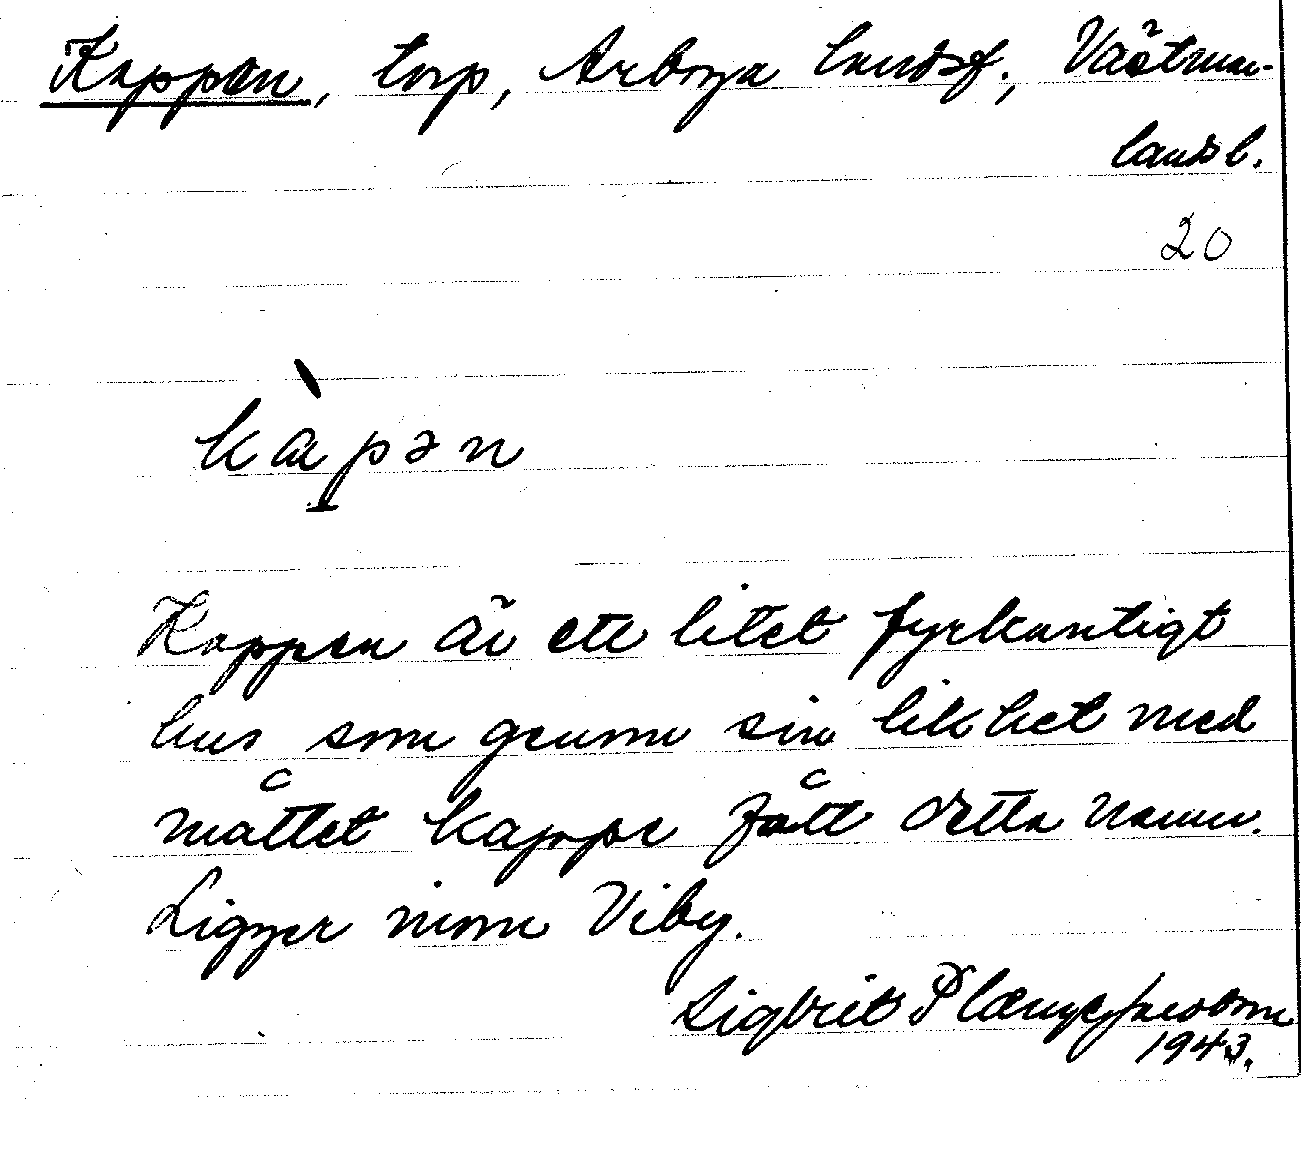 Kappen, torp, Arboga landsf., Västman-
landsl.
20
kàpən
Kappen är ett litet fyrkantigt
hus som genom sin likhet med
måttet kappe fått detta namn.
Ligger inom Viby.
Sigbrit
1943.